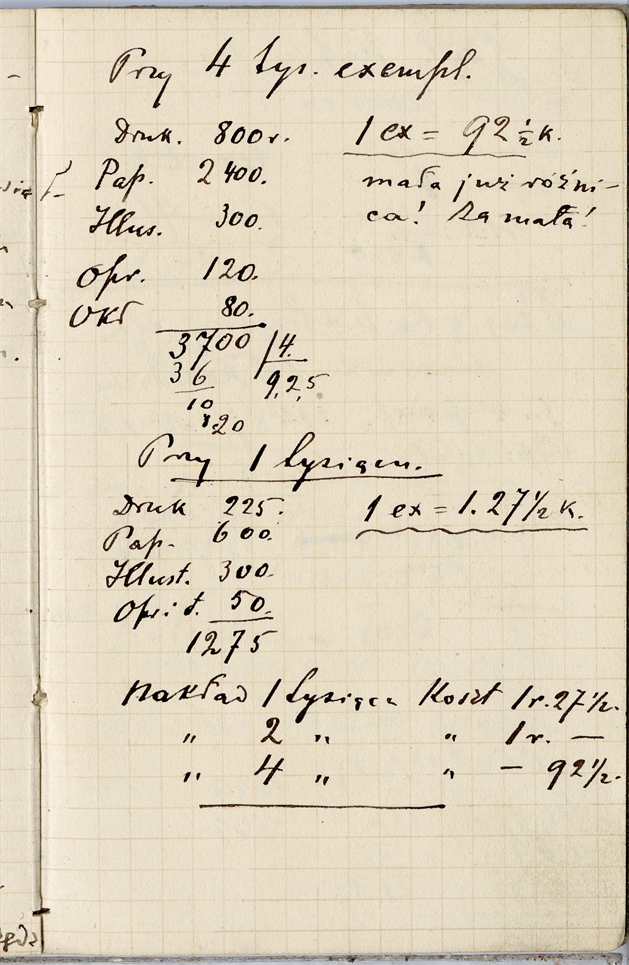 Przy 4 tys. exempl.
Druk. 800r. 1 ex = 92 ½ k.
Pap. 2400. mała już różni-
Illus. 300. ca! Za mała!
Opr. 120.
Okł 80.
3700 | 4.
36 9,2,5
10
20
Przy 1 tysiącu.
Druk 225. 1 ex = 1.27½ k.
Pap. 600.
Illust. 300.
Opr i t. 50.
1275
Nakład 1 tysiąca Koszt 1r.27½.
„ 2 „ „ 1r. —
„ 4 „ „ — 92½.